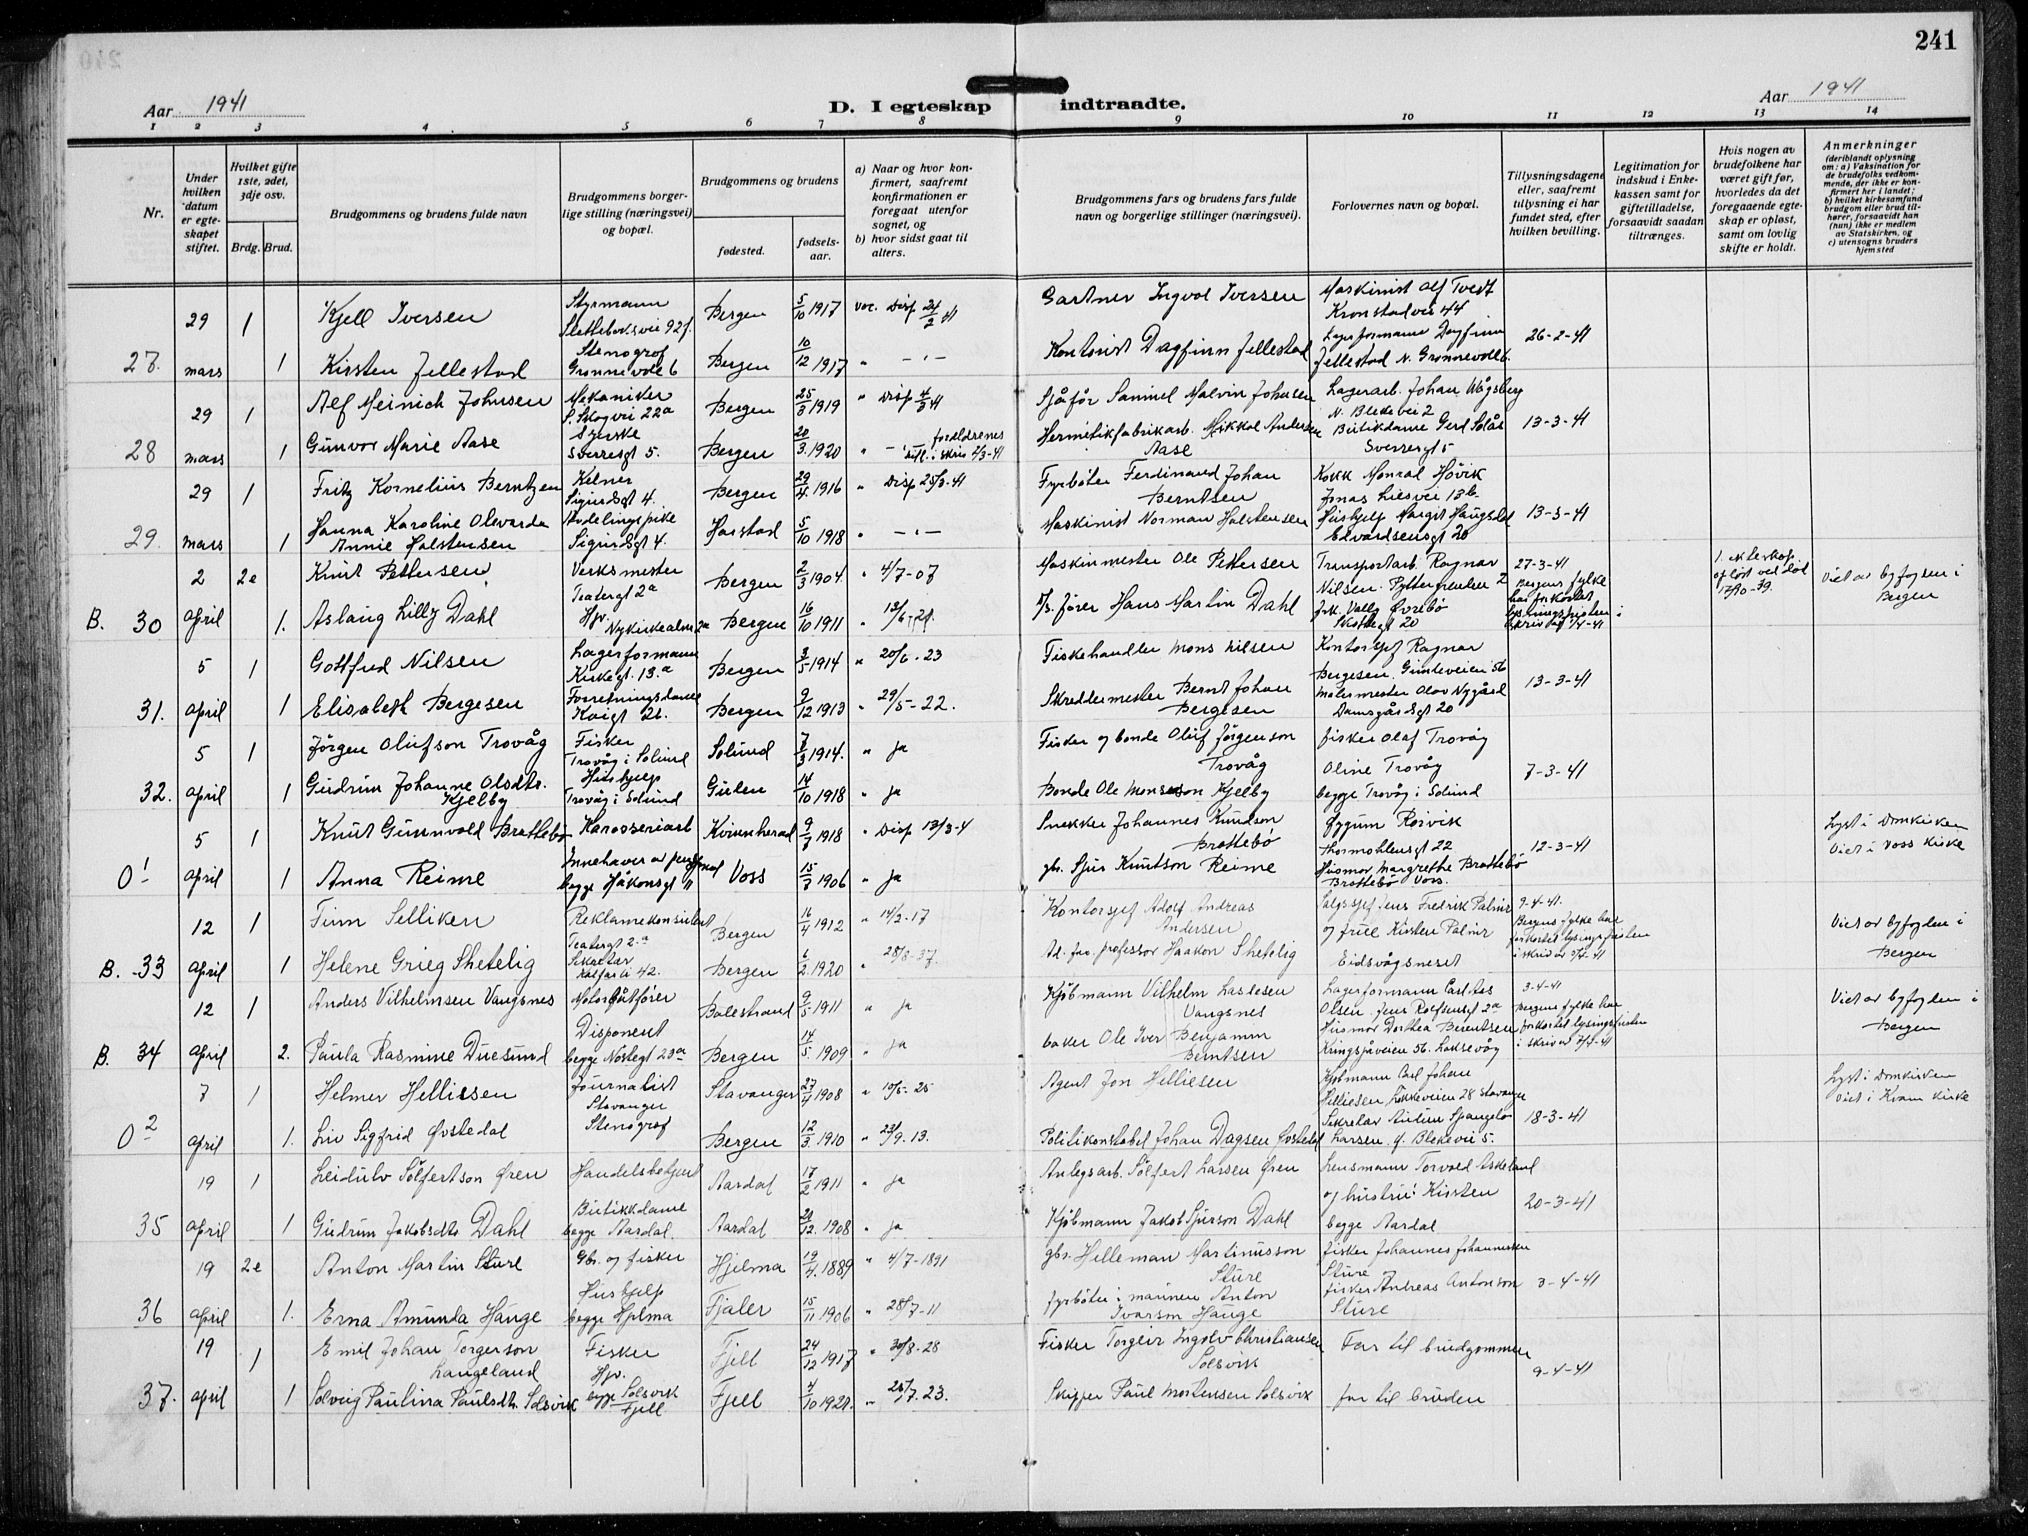 241
Aar 1941
D. I egteskap indtraadte.
Aar 1941
1 2 3 4 5 6 7 8 9 10 11 12 13 14
Nr.
Under hvilken datum er egteskapet stiftet.
Hvilket gifte 1ste, 2det, 3dje osv.
Brdg. Brud.
Brudgommens og brudens fulde navn
Brudgommens borgerlige stilling (næringsvei) og bopæl.
Brudgommens og brudens
fødested.
fødselsaar.
a) Naar og hvor konfirmert, saafremt konfirmationen er foregaat utenfor sognet, og
b) hvor sidst gaat til alters.
Brudgommens fars og brudens fars fulde navn og borgerlige stillinger (næringsvei).
Forlovernes navn og bopæl.
Tillysningsdagene eller, saafremt tillysning ei har fundet sted, efter hvilken bevilling.
Legitimation for indskud i Enkekassen samt for giftetilladelse, forsaavidt saadan tiltrænges.
Hvis nogen av brudefolkene har været gift før, hvorledes da det foregaaende egteskap er opløst, samt om lovlig skifte er holdt.
Anmerkninger
(deriblandt oplysning om: a) Vaksination for de brudefolks vedkommende, der ikke er konfirmert her i landet; b) hvilket kirkesamfund brudgom eller brud tilhører, forsaavidt han (hun) ikke er medlem av Statskirken, og c) utensogns bruders hjemsted
29 1 Kjell Iversen Styrmann Bergen 5/10 1917 vac. Disp 24/2 41 Gartner Ingvol Iversen Maskinist Alf Tvedt Kronstadvei 44
27. mars 1 Kirsten Fellestad Stenograf Bergen 16/12 1917 " - " - Kontorist Dagfinn Fellestad Lagerformann Dagfinn Fellestad 26-2-41
29 1 Alf Meinich Johnsen Mekaniker 22a Bergen 25/3 1919 " Disp 4/3 41 Sjåfør Samuel Malvin Johnsen Lagerarb. Johan Vågsberg N. Blekevei 2
28 mars 1 Gunvor Marie Aase Syerske Sverresgt 5. Bergen 20/3 1920 foreldrenes Hermetikfabrikarb. Mikkal Andersen Aase Butikdame Gerd Solås Sverresgt 5 13-3-41
29 1 Fritz Kornelius Berntzen Kelner Sigurdsgt 4. Bergen 29/4 1916 " Disp 25/3-41 Fyrbøter Ferdinand Johan Berntsen Kokk Monrad Høvik Jonas Liesvei 13b.
29. mars 1 Hanna Karoline Olevarda Annie Halstensen Avdelingspike Sigurdsgt 4. Harstad 5/10 1918 " - " - Maskinist Norman Halstensen Hushjelp Margit Haugsdal Edvardsensgt 20 13-3-41
2 2e Knut Pettersen Verksmester Teatergt 2a Bergen 2/3 1904. " 4/7-07 Maskinmester Ole Pettersen Transportarb. Ragnar Nilsen. 27-3-41 Bergens fylke har forkortet lysningsfristen 1. ekteskap opløst ved død 17/10-39. Viet av byfogden i Bergen
B. 30 april 1. Aslaug Lilly Dahl Hjv. Nykirkealm. 2a Bergen 16/10 1911 D/S. fører Hans Martin Dahl frk. Valby Øvrebø 20
5 1 Gottfred Nilsen Lagerformann Kirkegt. 13a Bergen 3/5 1914 " 20/6-23 Fiskehandler Mons Nilsen Kontorsjef Ragnar Bergesen.
31. april 1 Elisabeth Bergesen Forretningsdame Bergen 9/12 1913 " 29/5-22. Skreddermester Bernt Johan Bergesen Malermester Olav Nygård Damsgårdsgt 20 13-3-41
5 1 Jørgen Olufson Trovåg Fisker Trovåg i Solund Solund 7/3 1914. " ja Fisker og bonde Oluf Jørgenson Trovåg fisker Olaf Trovåg
32. april 1 Gudrun Johanne Olsdtr. Kjelby Hushjelp Trovåg i Solund Gulen 14/10 1918 " ja Bonde Ole Monsson Kjelby Oline Trovåg begge Trovåg i Solund 7-3-41
5 1 Knut Gunnvald Brattebø Karosseriarb Kvinnherad 9/7 1918 " Disp 13/3-4 Snekker Johannes Knudson Brattebø Rørvik Thormøhlensgt 22 Lyst i Domkirken Viet i Voss kirke
0 1 april 1 Anna Reime Innehaver av begge Håkonsgt 11 Voss 15/7 1906 " ja gb. Sjur Knutson Reime Husmor Margrethe Brattebø Brattebø Voss. 12-3-41
12 1 Finn Selliken Reklamekonsulent Teatergt 2a Bergen 16/4 1912 " 14/2-17 Kontorsjef Adolf Andreas Andersen Salgssjef Jens Fredrik Palmr og frue Kirsten Palmr Eidsvågsneset 9-4-41. Bergens fylke har forkortet lysningsfristen Viet av byfogden i Bergen
B. 33 april 1 Helene Grieg Shetelig Sekretær Kalfarli 42. Bergen 6/2. 1920 " 28/8-37. professor Haakon Shetelig
12 1 Anders Vilhelmsen Vangsnes Motorbåtfører Balestrand 9/5 1911 " ja Kjøbmann Vilhelm Lassesen Vangsnes Lagerformann Carl Aas Olsen. 3-4-41 Bergens fylke har forkortet lysningsfristen Viet av byfogden i Bergen
B. 34 april 2. Paula Rasmine Duesund Disponent begge Nostegt 23a Bergen 14/5. 1909 " ja baker Ole Iver Benjamin Berntsen Husmor Dorthea Berentsen Kringsjåveien 56. Laksevåg
7 1 Helmer Helliesen Journalist Stavanger Stavanger 27/4 1908 " 10/5-25 Agent Jon Helliesen Kjøbmann Carl Johan Helliesen, 28 Stavanger Lyst i Domkirken Viet i Kvam kirke
0 2 april 1. Liv Sigfrid Øvstedal Stenograf Bergen 12/3. 1910 " 23/9-13. Politikonstabel Johan Dagsen Øvstedal Sekretær Anton Spangelo Larsen. 18-3-41
19 1 Leidulv Sølfertson Øren Handelsbetjent Aardal 17/2 1911 " ja Anlegsarb. Sølfert Larsen Øren Lensmann Torvald Askeland og hustru Kirsten
35 april 1 Gudrun Jakobsdtr. Dahl Butikkdame begge Aardal. Aardal 20/12. 1908 " ja Kjøbmann Jakob Sjurson Dahl begge Aardal 20-3-41
19 2e Anton Martin Sture Gb. og fisker Hjelma 19/4. 1889 " 4/7-1891 gbr. Helleman Martinusson Sture fisker Johannes Johannessen Sture
36 april 1. Erna Amunda Hauge Hushjelp begge Hjelma Fjaler 15/11 1906 " 28/7-11 fyrbøter i marinen Anton Ivarson Hauge fisker Andreas Antonson Sture 3-4-41
19 1 Emil Johan Torgerson Langeland Fisker Fjell 24/12 1917 " 30/8-28 Fisker Torgeir Ingolv Christiansen Solsvik Far til brudgommen
37. april 1 Solveig Paulina Paulsdtr. Solsvik Hjv. begge Solsvik Fjell Fjell 4/10 1921. " 23. Skipper Paul Mortensen Solsvik far til bruden 9-4-41